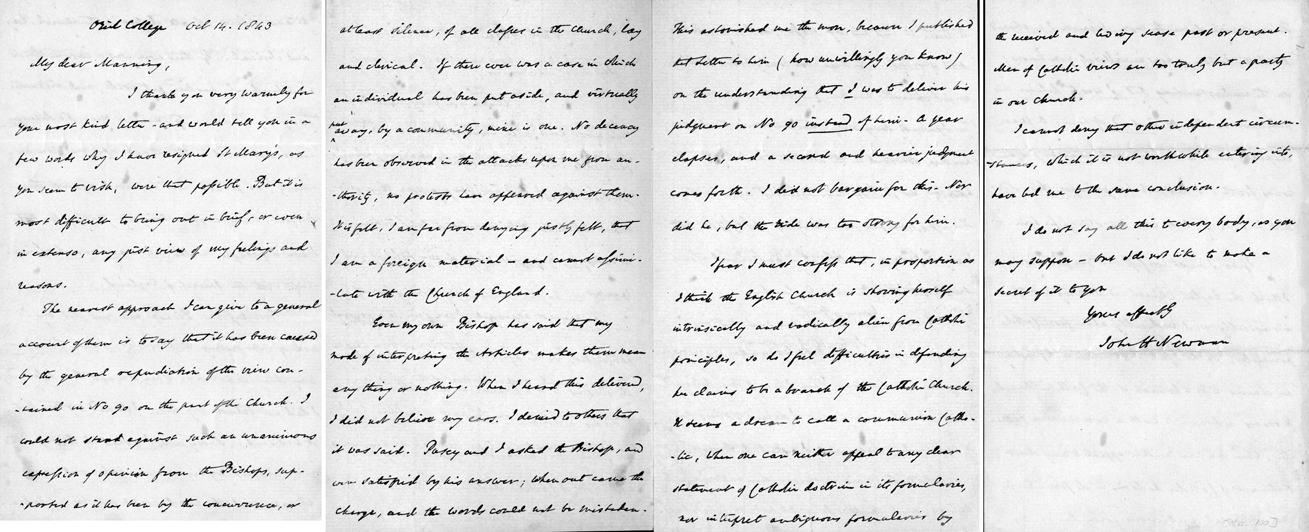 Oriel College Oct 14. 1843
My dear Manning,
I thank you very warmly for
your most kind letter - and would tell you in a
few words why I have resigned St Mary's, as
you seem to wish, were that possible. But it is
most difficult to bring out in brief, or even
in extenso, any just view of my feelings and
reasons.
The nearest approach I can give to a general
account of them is to say that it has been caused
by the general repudiation of the view con-
-tained in No 90 on the part of the Church. I
could not stand against such an unanimous
expression of opinion from the Bishops, sup-
-ported as it has been by the concurrence, or
at least silence, of all classes in the Church, lay
and clerical. If there ever was a case in which
an individual has been put aside, and virtually
put away, by a community, mine is one. No decency
has been observed in the attacks upon me from au-
-thority, no protests have appeared against them.
It is felt, I am far from denying justly felt, that
I am a foreign material - and cannot assimi-
-late with the Church of England.
Even my own Bishop has said that my
mode of interpreting the Articles makes them mean
any thing or nothing. When I heard this delivered,
I did not believe my ears. I denied to others that
it was said. Pusey and I asked the Bishop, and
were satisfied by his answer; when out came the
charge, and the words could not be mistaken.
This astonished me the more, because I published
that Letter to him (how unwillingly you know)
on the understanding that I was to deliver his
judgment on No 90 instead of him. A year
elapses, and a second and heavier judgment
comes forth. I did not bargain for this. Nor
did he, but the tide was too strong for him.
I fear I must confess that, in proportion as
I think the English Church is showing herself
intrinsically and radically alien from Catholic
principles, so do I feel difficulties in defending
her claims to be a branch of the Catholic Church.
It seems a dream to call a communion Catho-
-lic, when one can neither appeal to any clear
statement of Catholic doctrine in its formularies,
nor interpret ambiguous formularies by
the received and living sense past or present.
Men of Catholic views are too truly but a party
in our Church.
I cannot deny that other independent circum-
-stances, which it is not worthwhile entering into,
have led me to the same conclusion.
I do not say all this to every body, as you
may suppose - but I do not like to make a
secret of it to you
Yours affectly
John H Newman